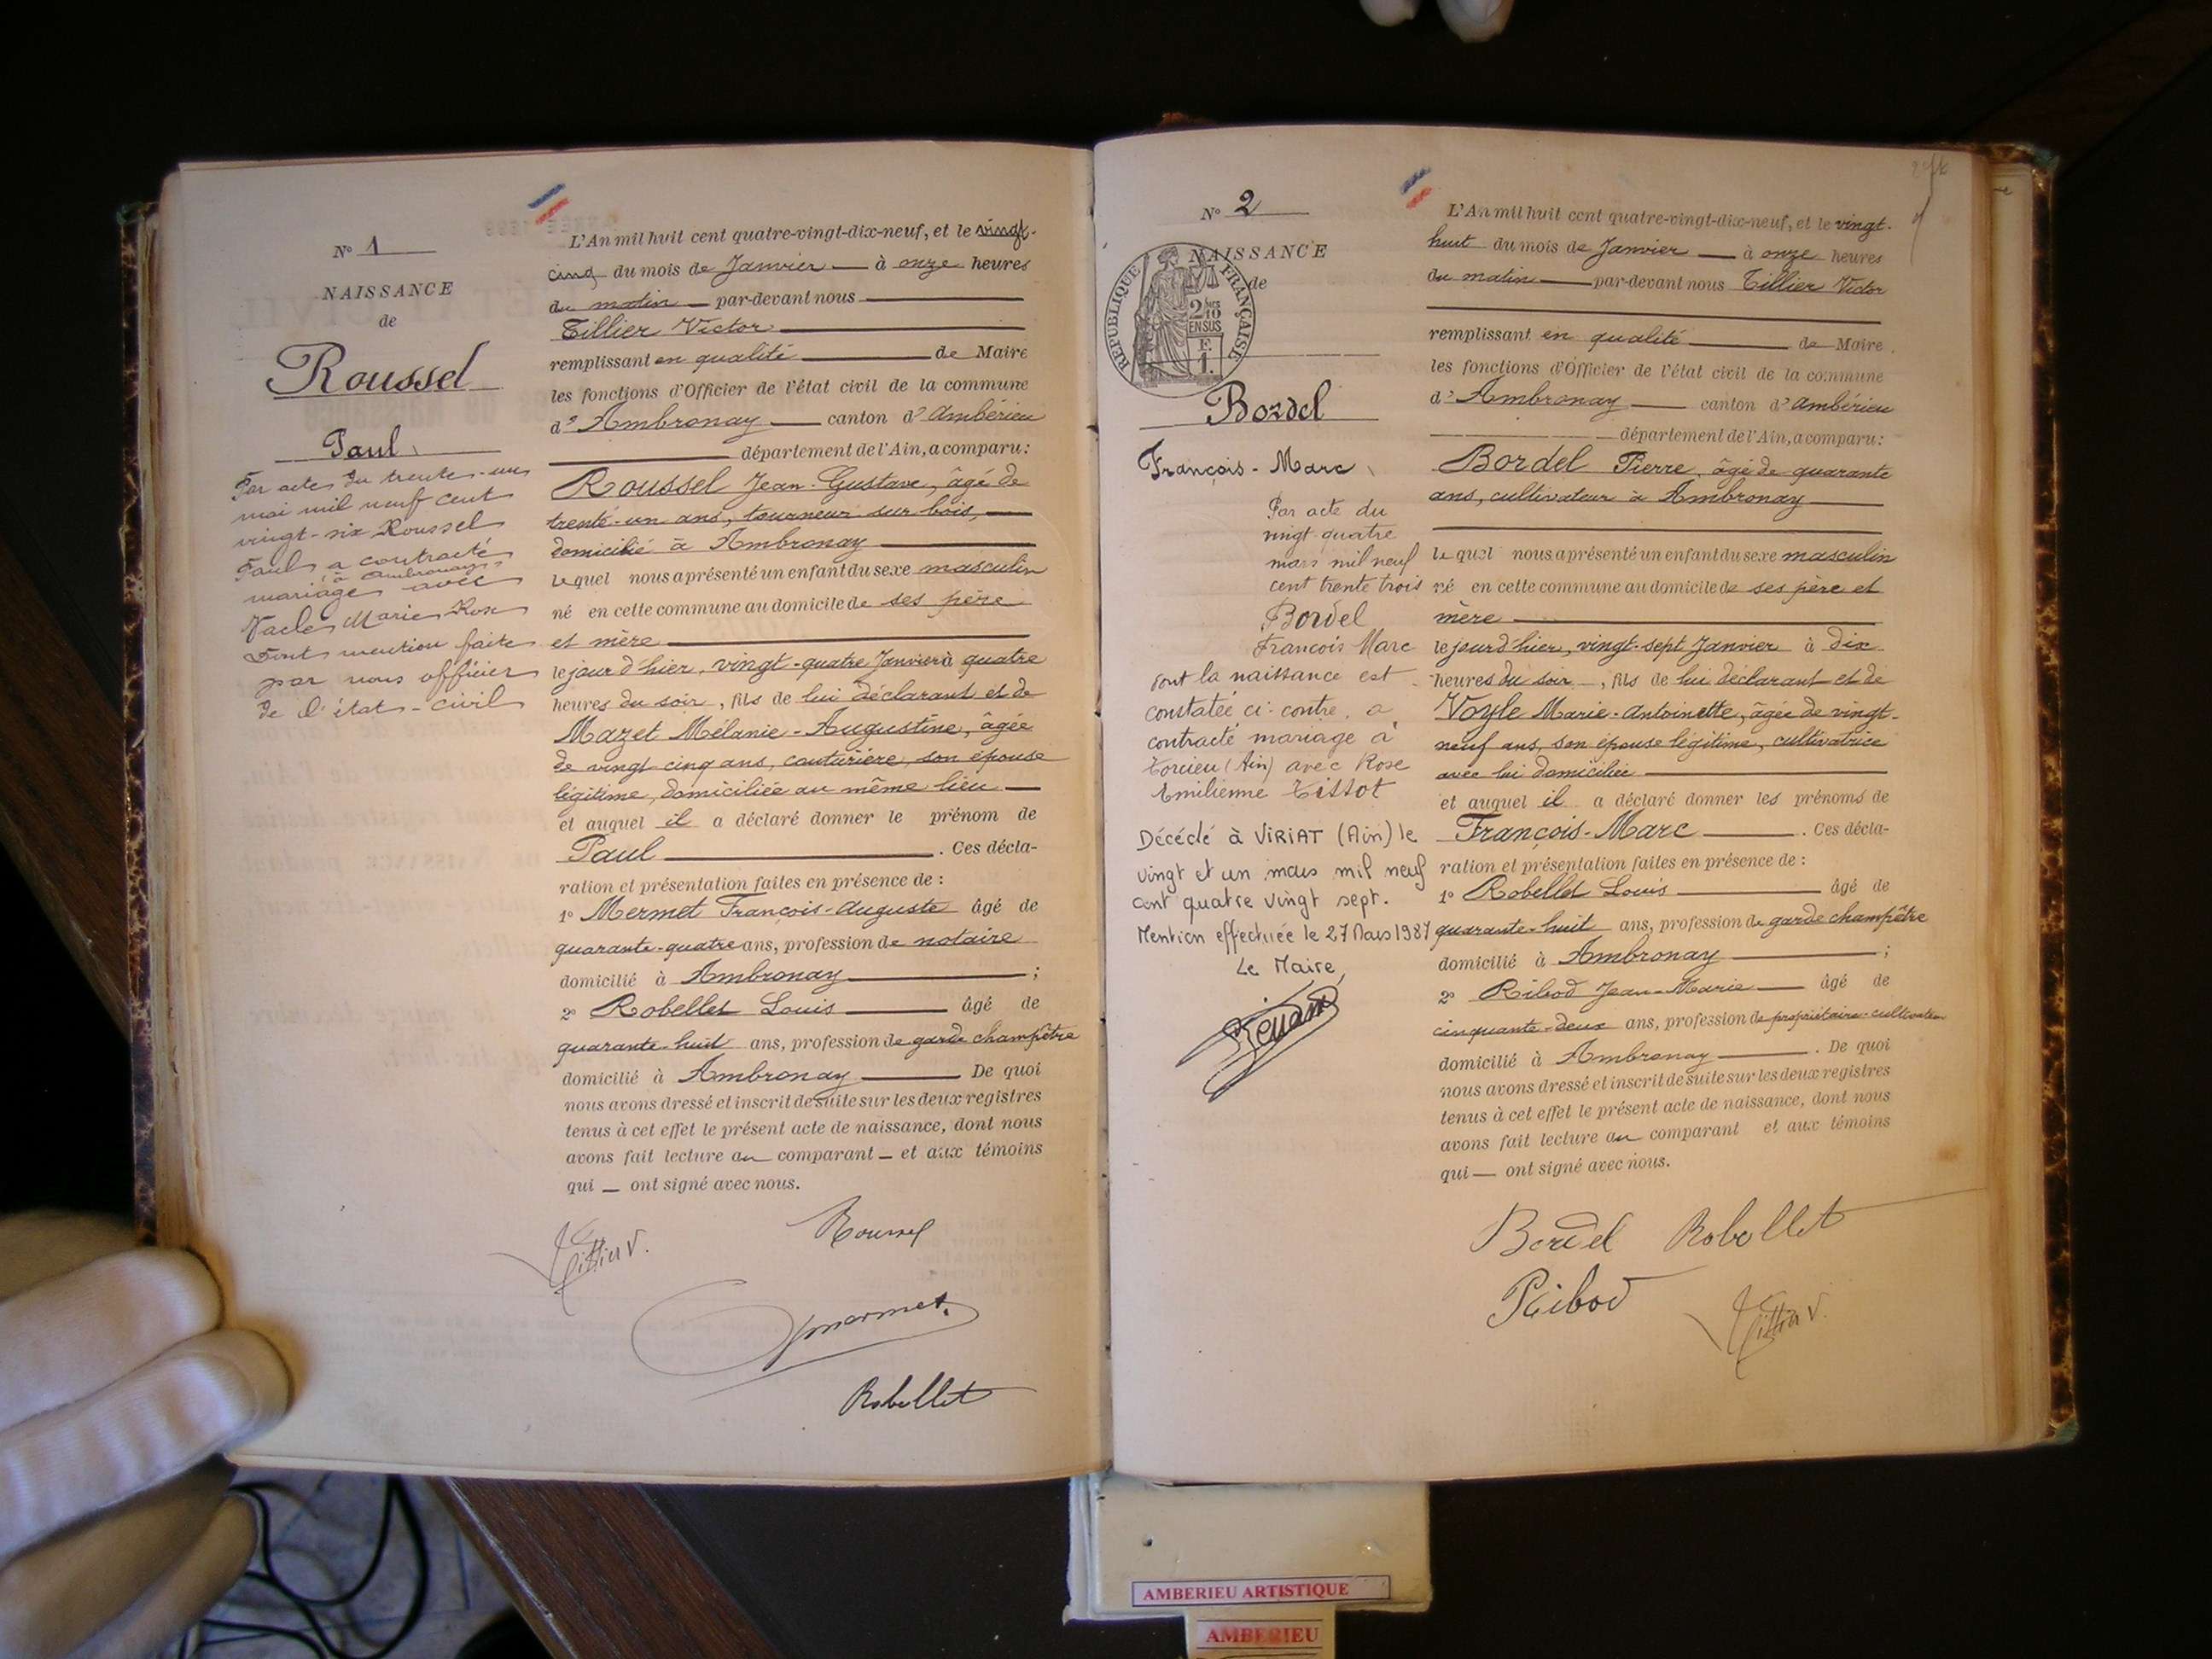 N° 1
NAISSANCE
de
Roussel
Paul
Par acte du trente-un
mai mil neuf cent
vingt-six Roussel
Paul a contracté
à Ambronay
mariage avec
Vacle Marie Rose
Dont mention faite
par nous officier
de l'état-civil
L'An mil huit cent quatre-vingt-dix-neuf, et le vingt-
cinq du mois de Janvier — à onze heures
du matin — par-devant nous
Tillier Victor
remplissant en qualité de Maire
les fonctions d'Officier de l'état civil de la commune
d'Ambronay — canton d'Ambérieu
département de l'Ain, a comparu :
Roussel Jean-Gustave, âgé de
trente-un ans, tourneur sur bois,
domicilié à Ambronay
lequel nous a présenté un enfant du sexe masculin
né en cette commune au domicile de ses père
et mère
le jour d'hier, vingt-quatre Janvier à quatre
heures du soir, fils de lui déclarant et de
Mazet Mélanie-Augustine, âgée
de vingt cinq ans, couturière, son épouse
légitime, domiciliée au même lieu
et auquel il a déclaré donner le prénom de
Paul . Ces décla-
ration et présentation faites en présence de :
1° Mermet François-Auguste âgé de
quarante-quatre ans, profession de notaire
domicilié à Ambronay ;
2° Robellet Louis âgé de
quarante-huit ans, profession de garde champêtre
domicilié à Ambronay De quoi
nous avons dressé et inscrit de suite sur les deux registres
tenus à cet effet le présent acte de naissance, dont nous
avons fait lecture au comparant — et aux témoins
qui — ont signé avec nous.
Tillier V. Roussel
Mermet
Robellet
N° 2
NAISSANCE
de
RÉPUBLIQUE FRANÇAISE
2/10
EN SUS
F.
1.
Bordel
François-Marc
Par acte du
vingt quatre
mars mil neuf
cent trente trois
Bordel
François Marc
dont la naissance est
constatée ci-contre, a
contracté mariage à
Torcieu (Ain) avec Rose
Emilienne Tissot
Décédé à VIRIAT (Ain) le
vingt et un mars mil neuf
cent quatre vingt sept.
Mention effectuée le 27 Mars 1987
Le Maire,
L'An mil huit cent quatre-vingt-dix-neuf, et le vingt-
huit du mois de Janvier — à onze heures
du matin — par-devant nous Tillier Victor
remplissant en qualité de Maire
les fonctions d'Officier de l'état civil de la commune
d'Ambronay — canton d'Ambérieu
département de l'Ain, a comparu :
Bordel Pierre, âgé de quarante
ans, cultivateur à Ambronay
lequel nous a présenté un enfant du sexe masculin
né en cette commune au domicile de ses père et
mère
le jour d'hier, vingt-sept Janvier à dix
heures du soir, fils de lui déclarant et de
Voyle Marie-Antoinette, âgée de vingt-
neuf ans, son épouse légitime, cultivatrice
avec lui domiciliée
et auquel il a déclaré donner les prénoms de
François-Marc . Ces décla-
ration et présentation faites en présence de :
1° Robellet Louis âgé de
quarante-huit ans, profession de garde champêtre
domicilié à Ambronay ;
2° Ribod Jean-Marie âgé de
cinquante-deux ans, profession de propriétaire-cultivateur
domicilié à Ambronay . De quoi
nous avons dressé et inscrit de suite sur les deux registres
tenus à cet effet le présent acte de naissance, dont nous
avons fait lecture au comparant et aux témoins
qui — ont signé avec nous.
Bordel Robellet
Ribod Tillier V.
AMBERIEU ARTISTIQUE
AMBERIEU